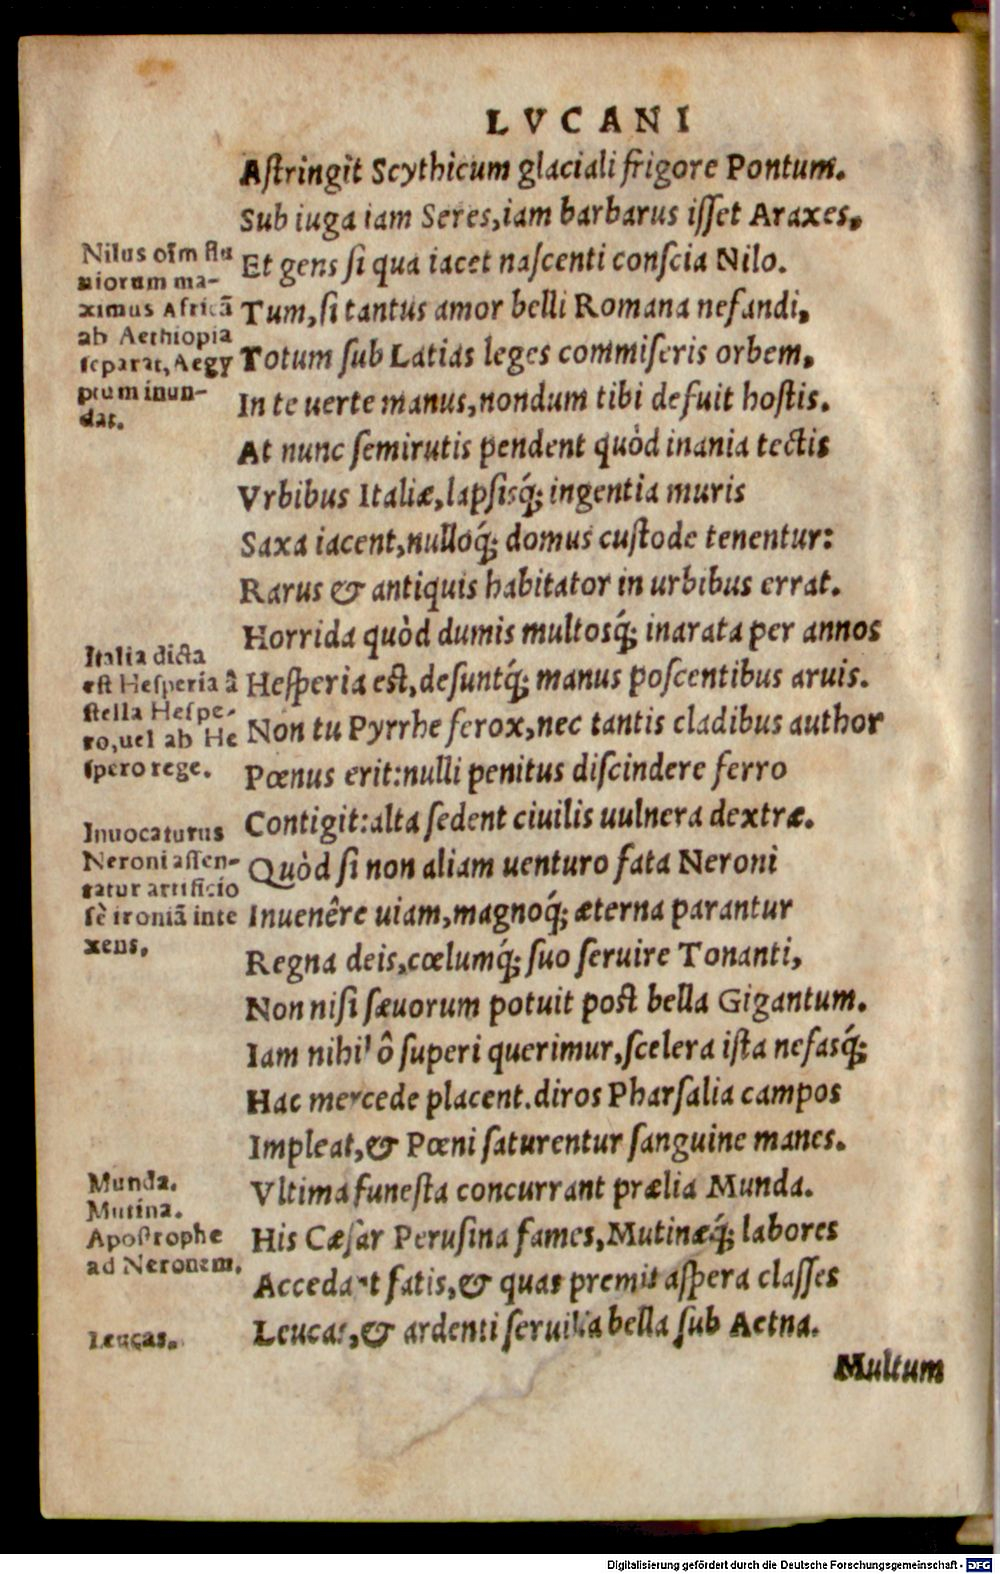 LVCANI
Aſtringit Scythicum glaciali frigore Pontum.
Sub iuga iam Seres, iam barbarus iſſet Araxes,
Et gens ſi qua iacet naſcenti conſcia Nilo.
Tum, ſi tantus amor belli Romana nefandi,
Totum ſub Latias leges commiſeris orbem,
In te uerte manus, nondum tibi defuit hoſtis.
At nunc ſemirutis pendent quòd inania tectis
Vrbibus Italiæ, lapſisq́; ingentia muris
Saxa iacent, nulloq́; domus cuſtode tenentur:
Rarus & antiquis habitator in urbibus errat.
Horrida quòd dumis multosq́; inarata per annos
Heſperia eſt, deſuntq́; manus poſcentibus aruis.
Non tu Pyrrhe ferox, nec tantis cladibus author
Pœnus erit: nulli penitus diſcindere ferro
Contigit: alta ſedent ciuilis uulnera dextræ.
Quòd ſi non aliam uenturo fata Neroni
Inuenêre uiam, magnoq́; æterna parantur
Regna deis, cœlumq́; ſuo ſeruire Tonanti,
Non niſi ſæuorum potuit poſt bella Gigantum.
Iam nihil ô ſuperi querimur, ſcelera iſta nefasq́;
Hac mercede placent. diros Pharſalia campos
Impleat, & Pœni ſaturentur ſanguine manes.
Vltima funeſta concurrant prælia Munda.
His Cæſar Peruſina fames, Mutinæq́; labores
Accedant fatis, & quas premit aſpera claſſes
Leucas, & ardenti ſeruilia bella ſub Aetna.
Multum
Nilus oīm flu
uiorum ma-
ximus Africā
ab Aethiopia
ſeparat, Aegy
ptum inun-
dat.
Italia dicta
eſt Heſperia à
ſtella Heſpe-
ro, uel ab He
ſpero rege.
Inuocaturus
Neroni aſſen-
tatur artificio
ſè ironiā inte
xens.
Munda.
Mutina.
Apoſtrophe
ad Neronem.
Leucas.
Digitalisierung gefördert durch die Deutsche Forschungsgemeinschaft - DFG